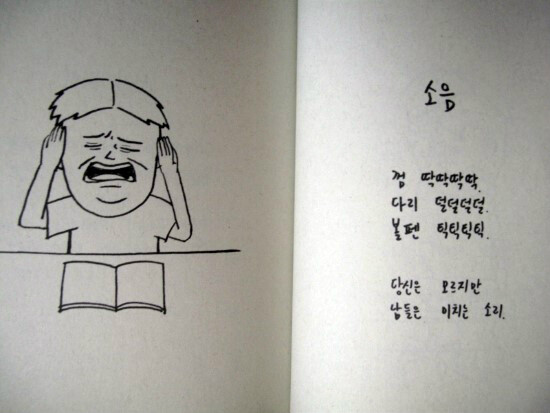 소음
껌 딱딱딱딱.
다리 덜덜덜덜.
볼펜 틱틱틱틱.
당신은 모르지만
남들은 미치는 소리.